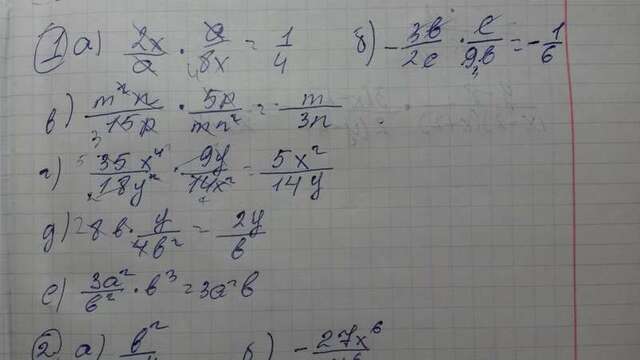 1 а) 2x/a · a/8x = 1/4 б) - 3b/2c · c/9b = - 1/6
в) m²n/15p · 5p/mn² = m/3n
г) 35x⁴/18y² · 9y/14x² = 5x²/14y
д) 8b · y/4b² = 2y/b
е) 3a²/b² · b³ = 3a²b
2 а) b² б) - 27x⁶